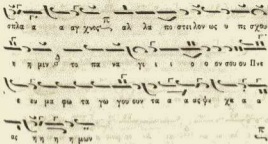 σπλα α α αγ χνος, αλ λα πο στει λον ως υ πε σχου
η μιν το πα να γι ι ι ο ο ον σου ου Πνε
ε ευ μα φω τα γω γουν τα α α ας ψυ χα α α
ας η η η η μων